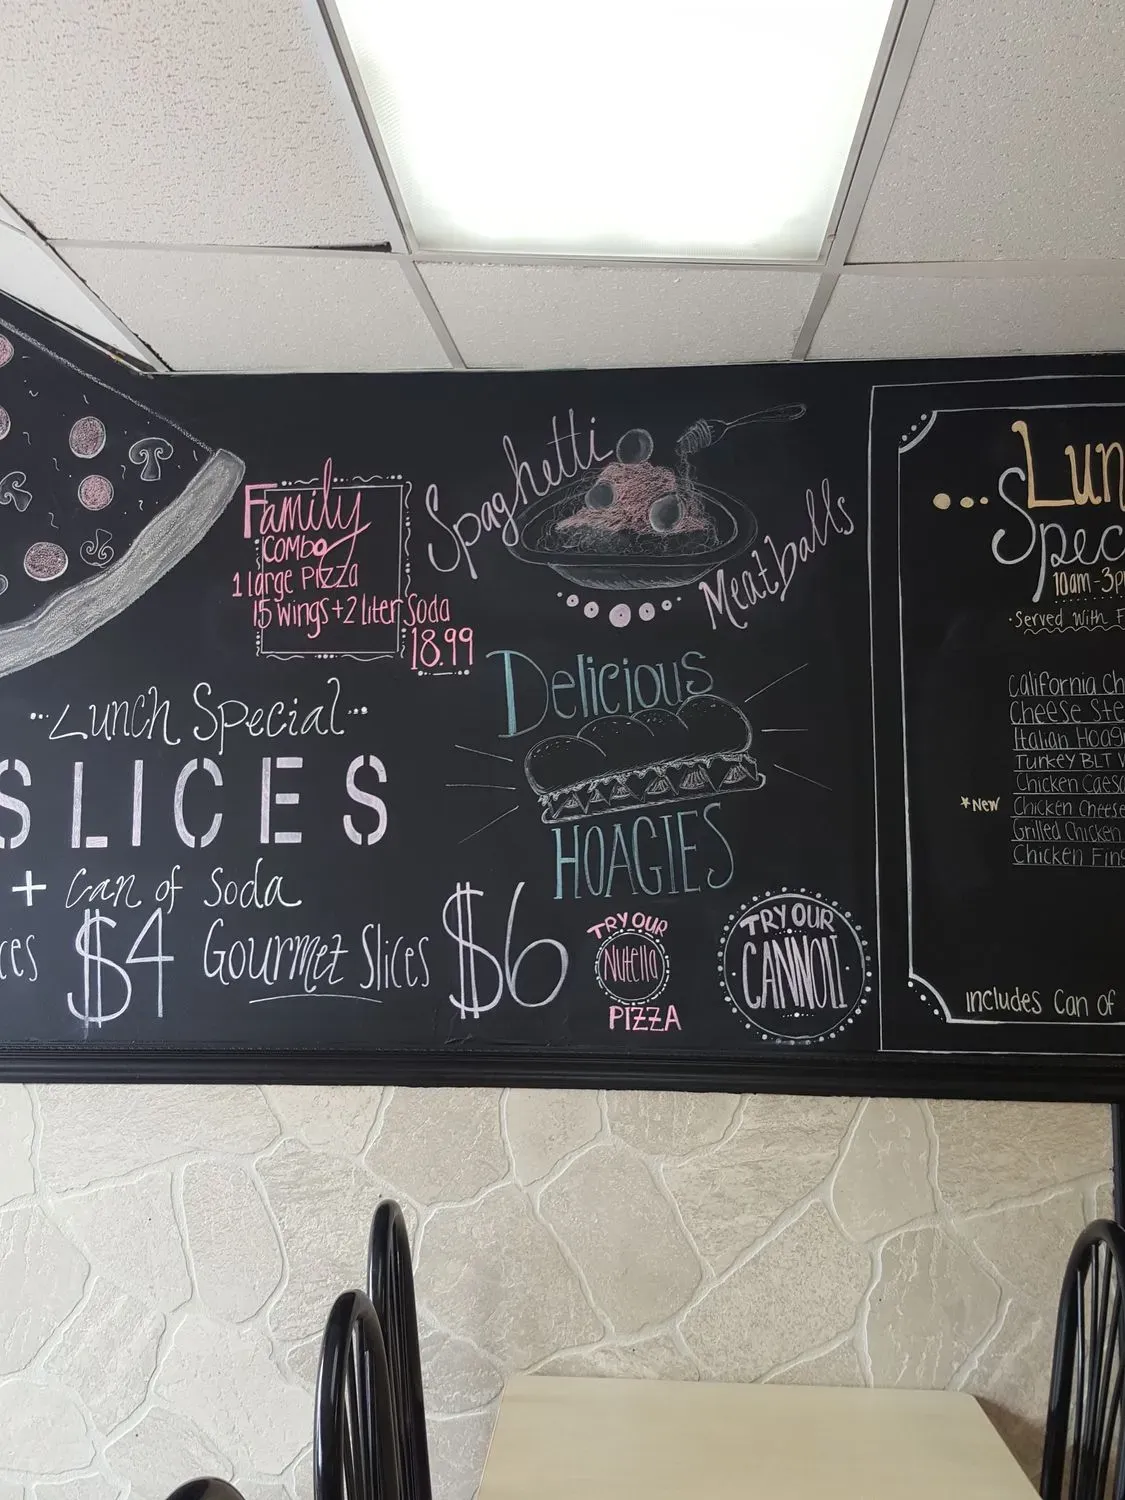 Family
Combo
1 large Pizza
15 wings + 2 liter Soda
18.99
Spaghetti
Meatballs
Lunch Special
SLICES
+ Can of Soda
$4 Gourmet Slices $6
Delicious
HOAGIES
TRY OUR
Nutella
PIZZA
TRY OUR
CANNOLI
Spec
10am-3p
Served With F
California Ch
Cheese Ste
Italian Hoag
Turkey BLT W
Chicken Caesa
*New Chicken Cheese
Grilled Chicken
Chicken Fin
includes Can of